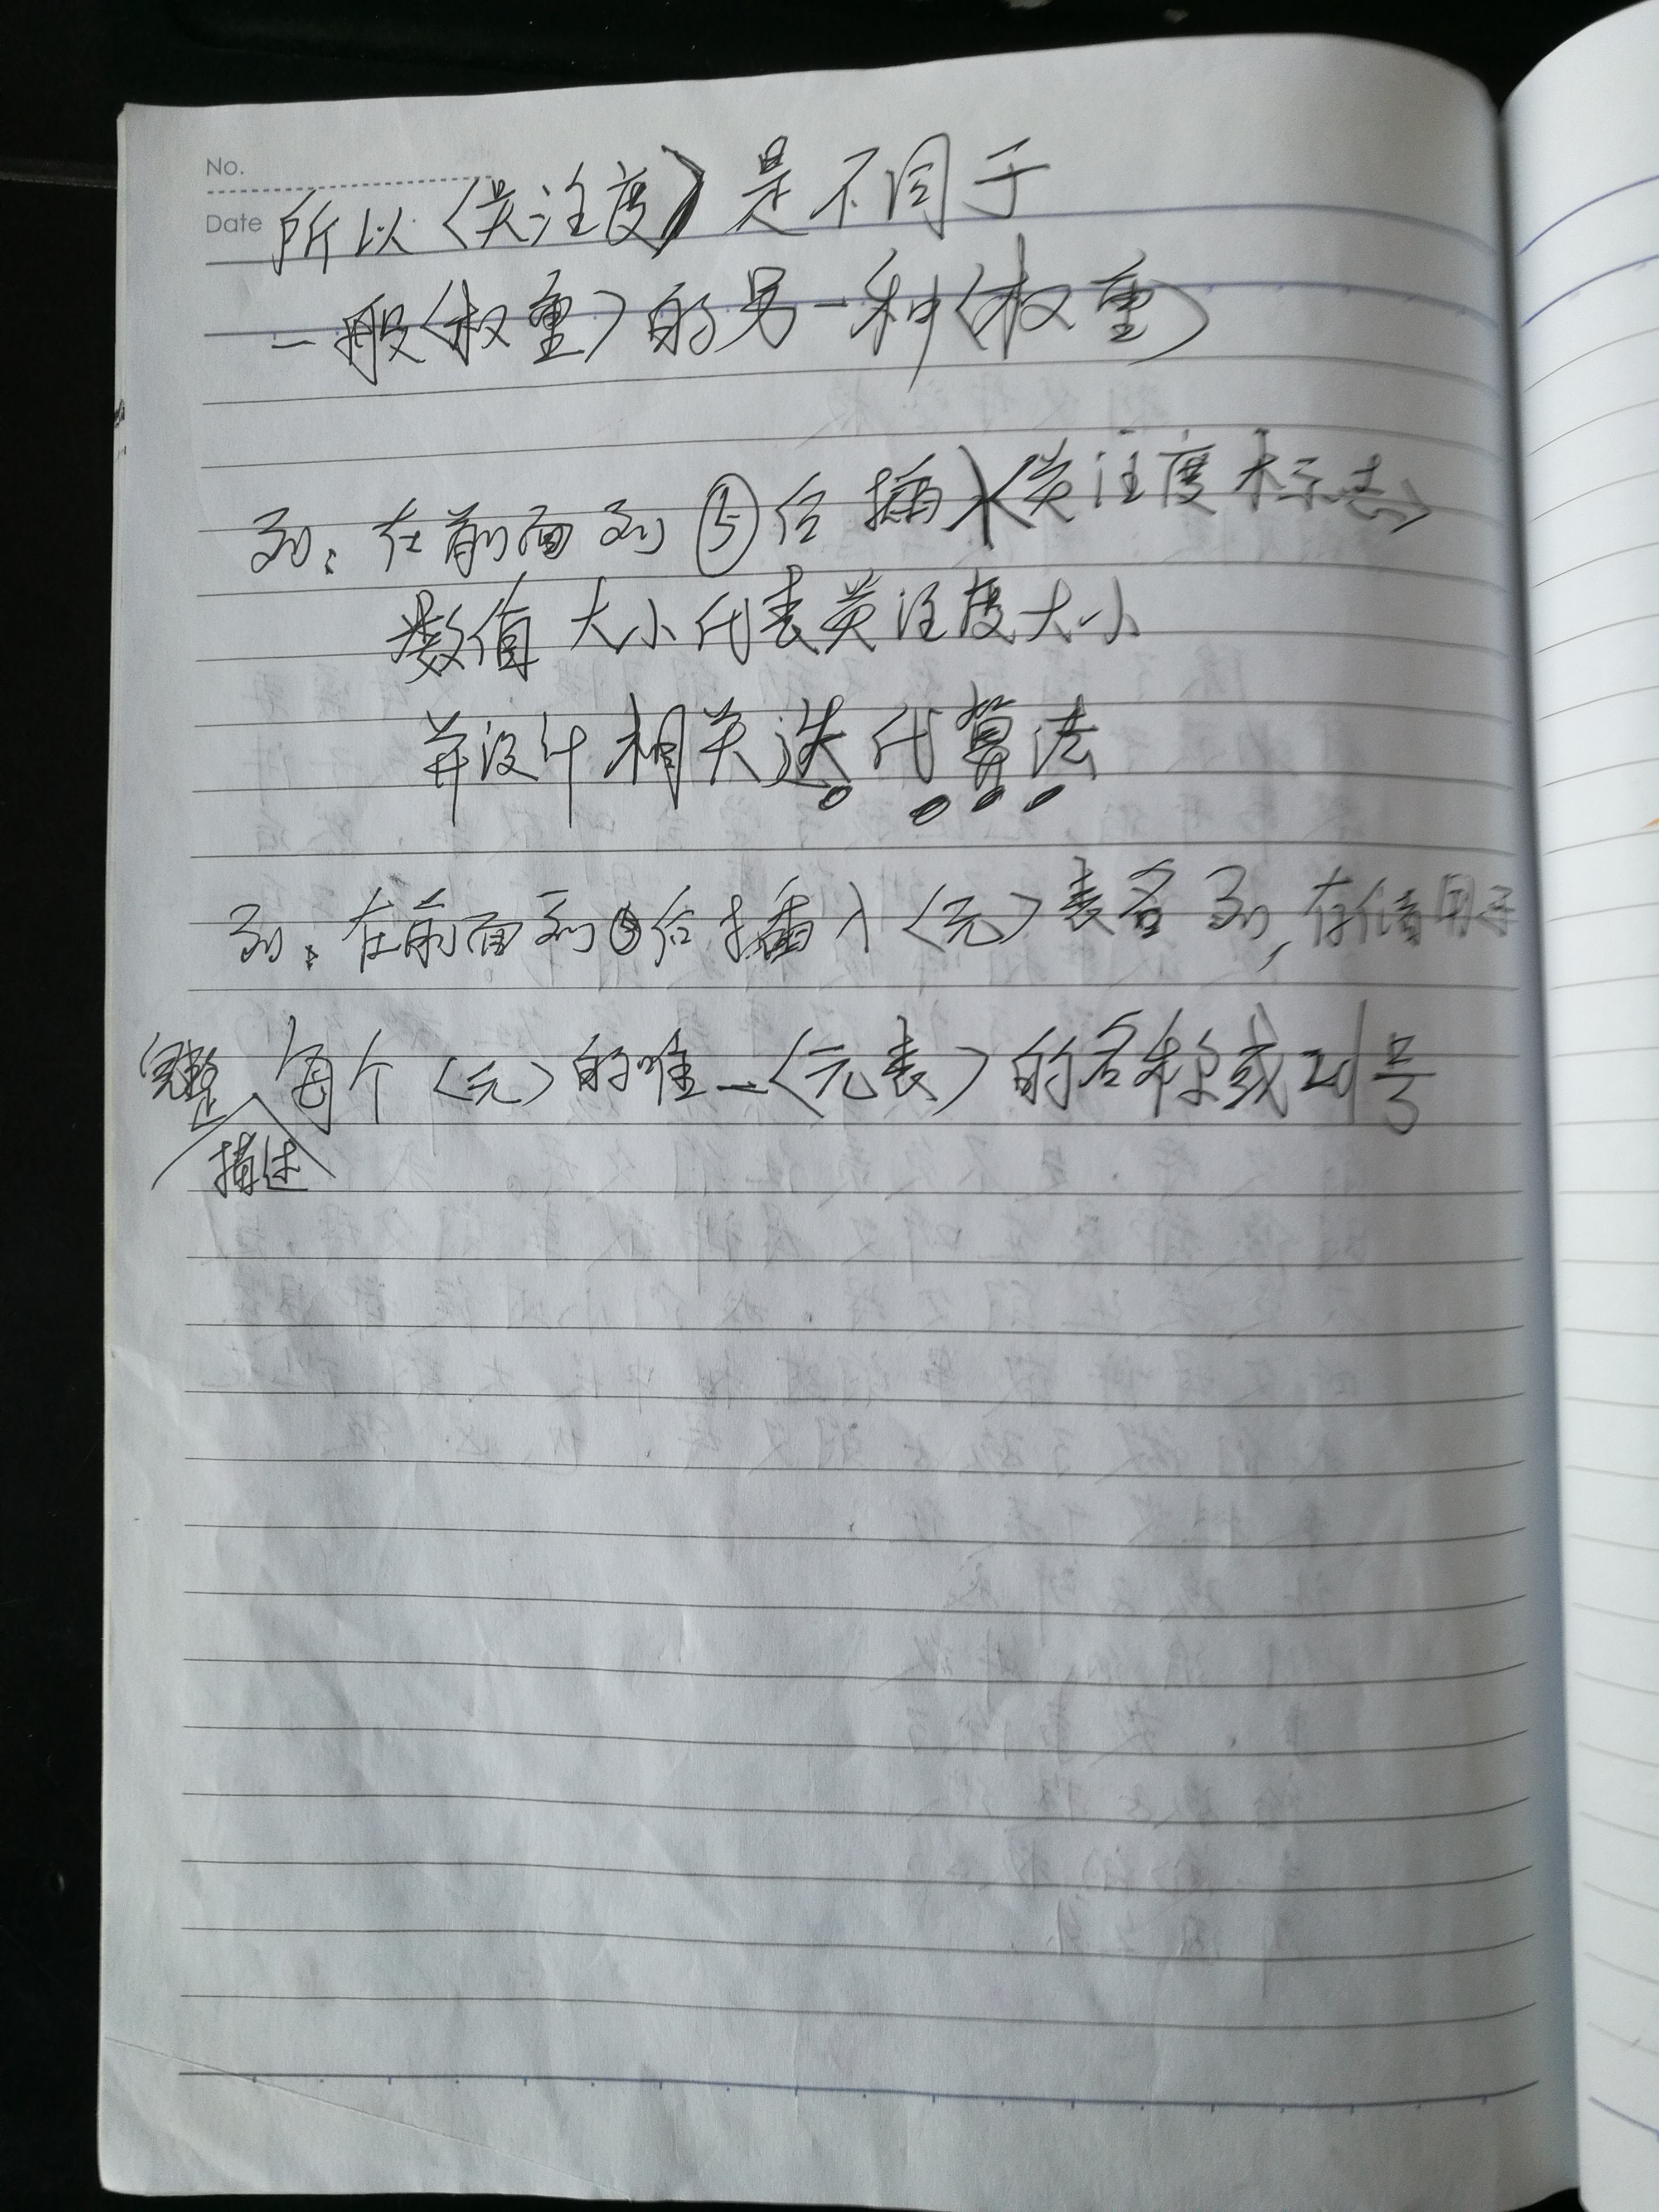 No.
Date
所以〈关注度〉是不同于
一般〈权重〉的另一种〈权重〉
列：在前面列⑤后插入〈关注度标志〉
数值大小代表关注度大小
并设计相关迭代算法
列：在前面列后插入〈元〉表名列，存储用于
完整描述每个〈元〉的唯一〈元表〉的名称或引号